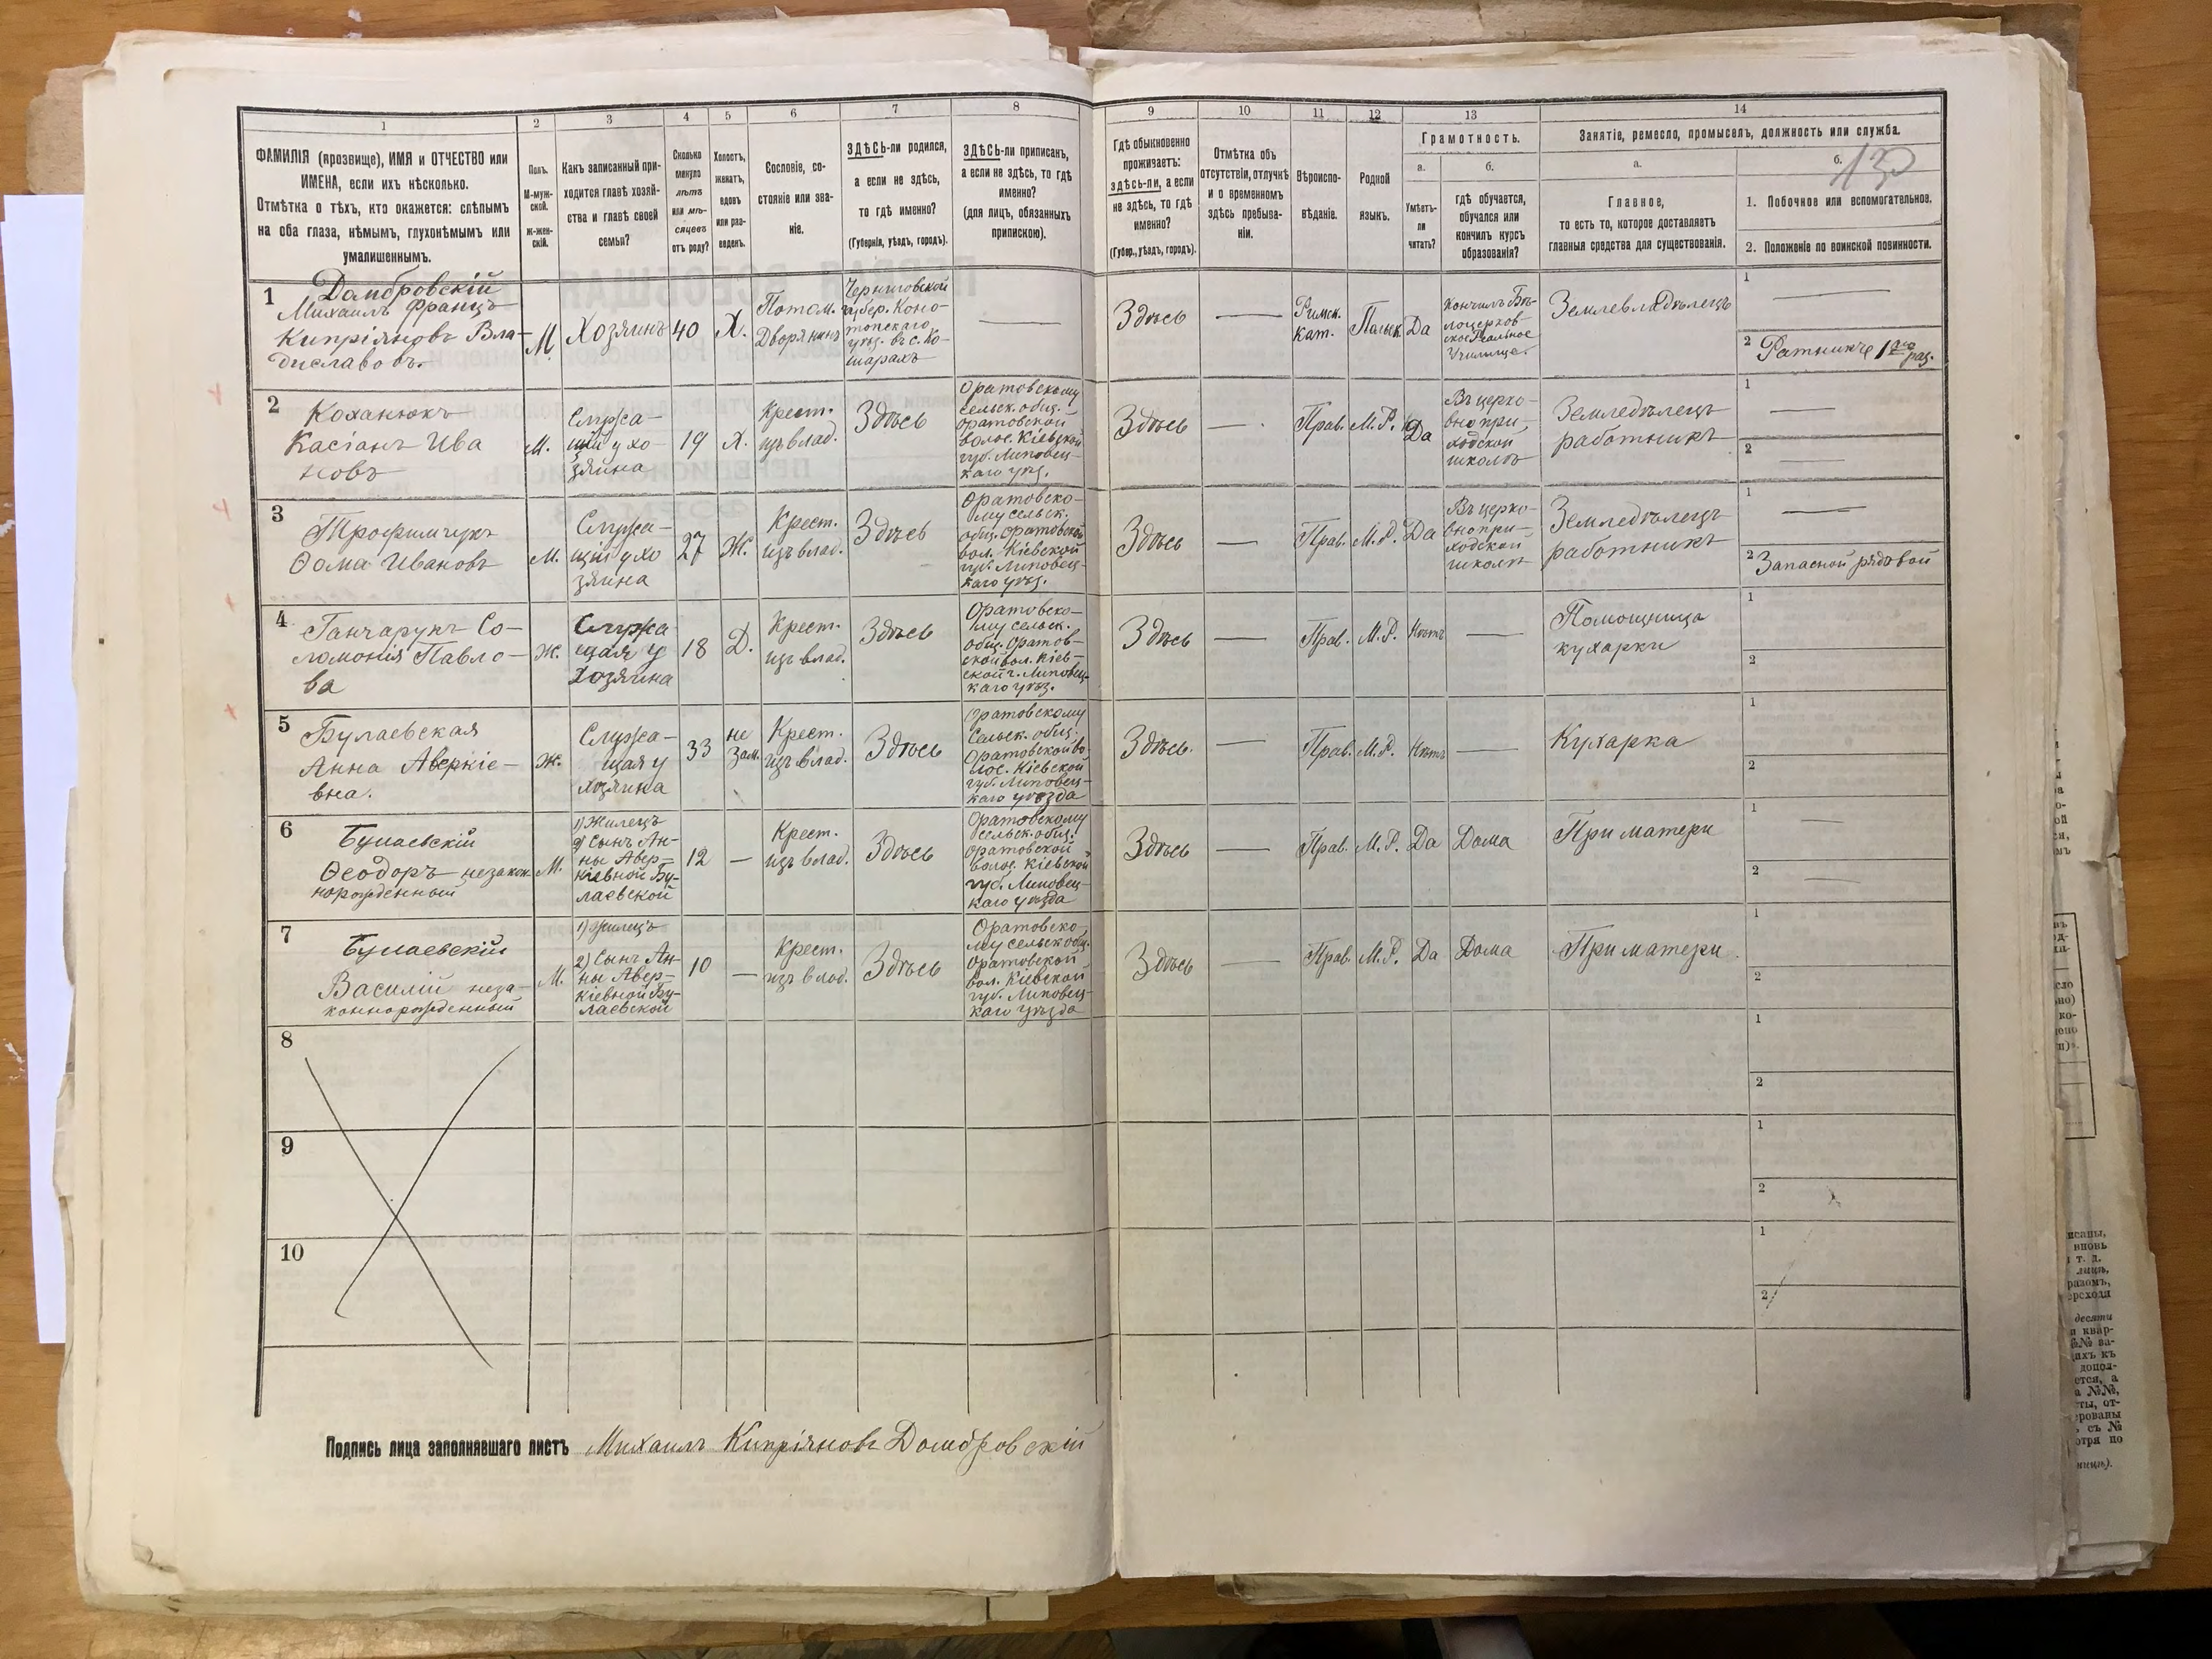 1
2
3
4
5
6
7
8
9
10
11
12
13
14
ФАМИЛІЯ (прозвище), ИМЯ и ОТЧЕСТВО или
ИМЕНА, если ихъ нѣсколько.
Отмѣтка о тѣхъ, кто окажется: слѣпымъ
на оба глаза, нѣмымъ, глухонѣмымъ или
умалишеннымъ.
Полъ.
М-муж-
ской.
Ж-жен-
скій.
Какъ записанный при-
ходится главѣ хозяй-
ства и главѣ своей
семьи?
Сколько
минуло
лѣтъ
или мѣ-
сяцевъ
отъ роду?
Холостъ,
женатъ,
вдовъ
или раз-
веденъ.
Сословіе, со-
стояніе или зва-
ніе.
ЗДѢСЬ-ли родился,
а если не здѣсь,
то гдѣ именно?
(Губернія, уѣздъ, городъ).
ЗДѢСЬ-ли приписанъ,
а если не здѣсь, то гдѣ
именно?
(для лицъ, обязанныхъ
припискою).
Гдѣ обыкновенно
проживаетъ:
здѣсь-ли, а если
не здѣсь, то гдѣ
именно?
(Губер., уѣздъ, городъ).
Отмѣтка объ
отсутствіи, отлучкѣ
и о временномъ
здѣсь пребыва-
ніи.
Вѣроиспо-
вѣданіе.
Родной
языкъ.
Грамотность.
а.
Умѣетъ-
ли
читать?
б.
гдѣ обучается,
обучался или
кончилъ курсъ
образованія?
Занятіе, ремесло, промыселъ, должность или служба.
а.
Главное,
то есть то, которое доставляетъ
главныя средства для существованія.
б.
130
1. Побочное или вспомогательное.
2. Положеніе по воинской повинности.
1
Домбровскій
Михаилъ Францъ
Кипріяновъ Вла-
диславовъ.
М.
Хозяинъ
40
Х.
Потом.
Дворянинъ
Черниговской
губер. Коно-
топскаго
уѣз. въ с. Ко-
шарахъ
Здѣсь
Римск.
Кат.
Польск.
Да
Кончилъ Бѣ-
лоцерков-
ское Реальное
Училище.
Землевладѣлецъ
1
2 Ратникъ 1го раз.
2
Коханюкъ
Касіанъ Ива
новъ
М.
Служа-
щій у хо-
зяина
19
Х.
Крест.
изъ влад.
Здѣсь
Оратовскому
сельск. общ.
Оратовской
волос. Кіевской
губ. Липовец-
каго уѣз.
Здѣсь
Прав.
М.Р.
Да
Въ церко-
вно при-
ходской
школѣ
Земледѣлецъ
работникъ
1
2
3
Трофимчукъ
Ѳома Ивановъ
М.
Служа-
щій у хо
зяина
27
Ж.
Крест.
изъ влад.
Здѣсь
Оратовско-
му сельск.
общ. Оратовской
вол. Кіевской
губ. Липовец-
каго уѣз.
Здѣсь
Прав.
М.Р.
Да
Въ церко-
вно при-
ходской
школѣ
Земледѣлецъ
работникъ
1
2 Запасной рядовой
4
Ганчарукъ Со-
ломонія Павло-
ва
Ж.
Служа
щая у
Хозяина
18
Д.
Крест.
изъ влад.
Здѣсь
Оратовско-
му сельск.
общ. Оратов-
ской вол. Кіев-
ской г. Липовец-
каго уѣз.
Здѣсь
Прав.
М.Р.
Нѣтъ
Помощница
кухарки
1
2
5
Булаевская
Анна Аверкіе-
вна.
Ж.
Служа-
щая у
хозяина
33
не
Зам.
Крест.
изъ влад.
Здѣсь
Оратовскому
Сельск. общ.
Оратовской во-
лос. Кіевской
губ. Липовец-
каго уѣзда
Здѣсь.
Прав.
М.Р.
Нѣтъ
Кухарка
1
2
6
Булаевскій
Ѳеодоръ незакон-
норожденный
М.
1) Жилецъ
2) Сынъ Ан-
ны Авер-
кіевной Бу-
лаевской
12
Крест.
изъ влад.
Здѣсь
Оратовскому
сельск. общ.
Оратовской
волос. Кіевской
губ. Липовец-
каго уѣзда
Здѣсь
Прав.
М.Р.
Да
Дома
При матери
1
2
7
Булаевскій
Василій неза-
коннорожденный
М.
1) Жилецъ
2) Сынъ Ан-
ны Авер-
кіевной Бу-
лаевской
10
Крест.
изъ влад.
Здѣсь
Оратовско
му сельск общ.
Оратовской
вол. Кіевской
губ. Липовец-
каго уѣзда
Здѣсь
Прав.
М.Р.
Да
Дома
При матери.
1
2
8
1
2
9
1
2
10
1
2
Подпись лица заполнявшаго листъ Михаилъ Кипріяновъ Домбровскій